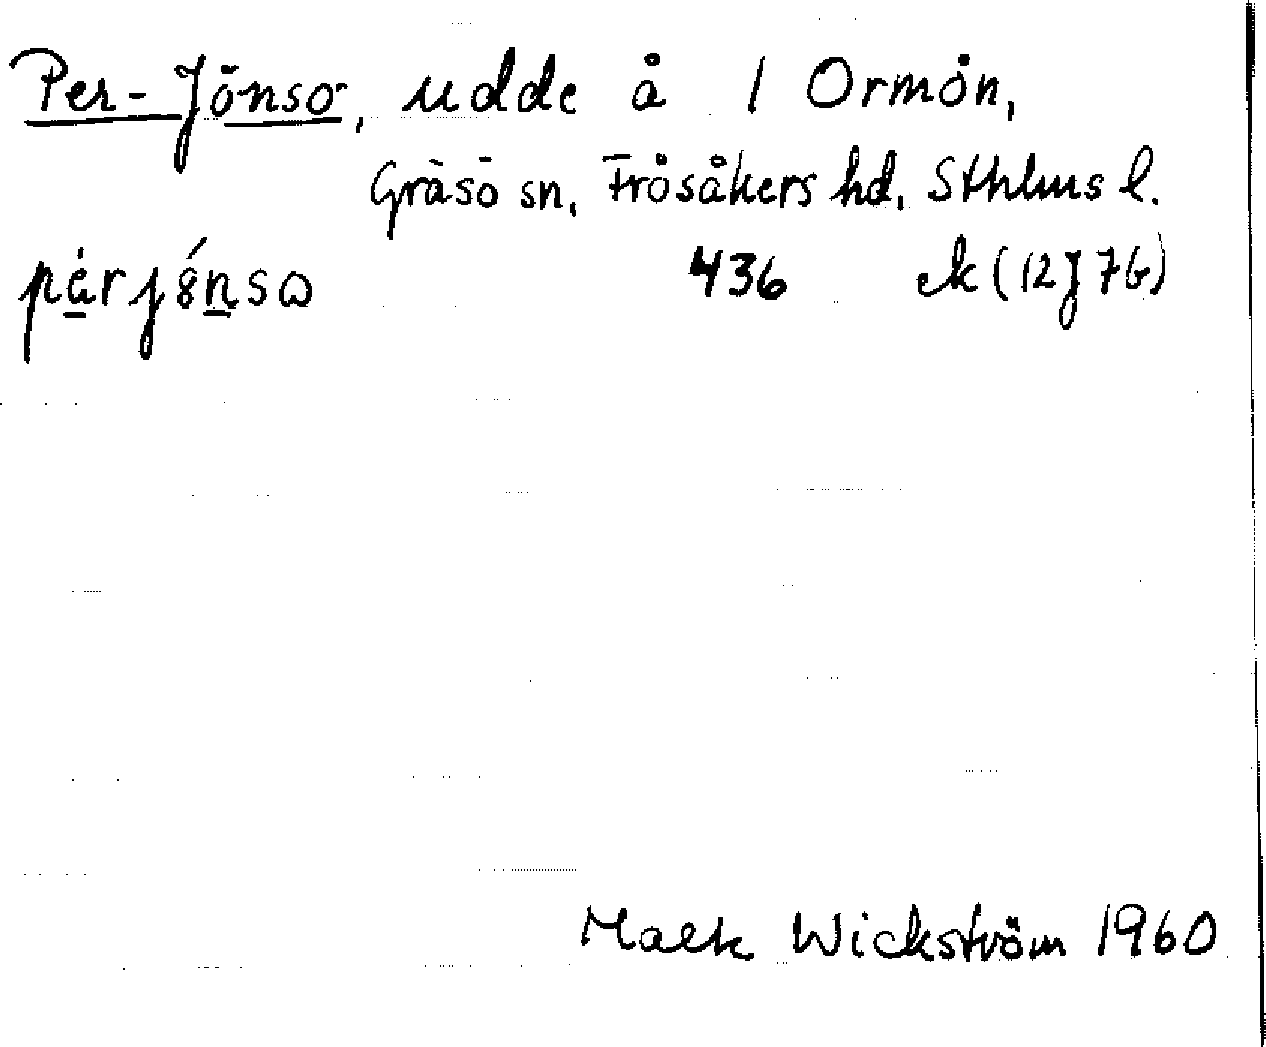 Per-Jönso, udde å / Ormön,
Gräsö sn, Frösåkers hd, Sthlms l.
pérjónso 436 ek (12 J 7 G)
Maek Wickström 1960